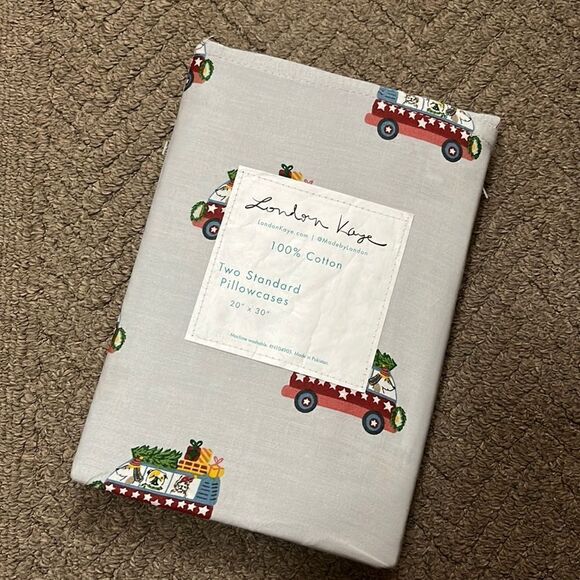 London Kaye
LondonKaye.com | @MadebyLondon
100% Cotton
Two Standard
Pillowcases
20" x 30"
Machine washable. RN104905. Made in Pakistan.